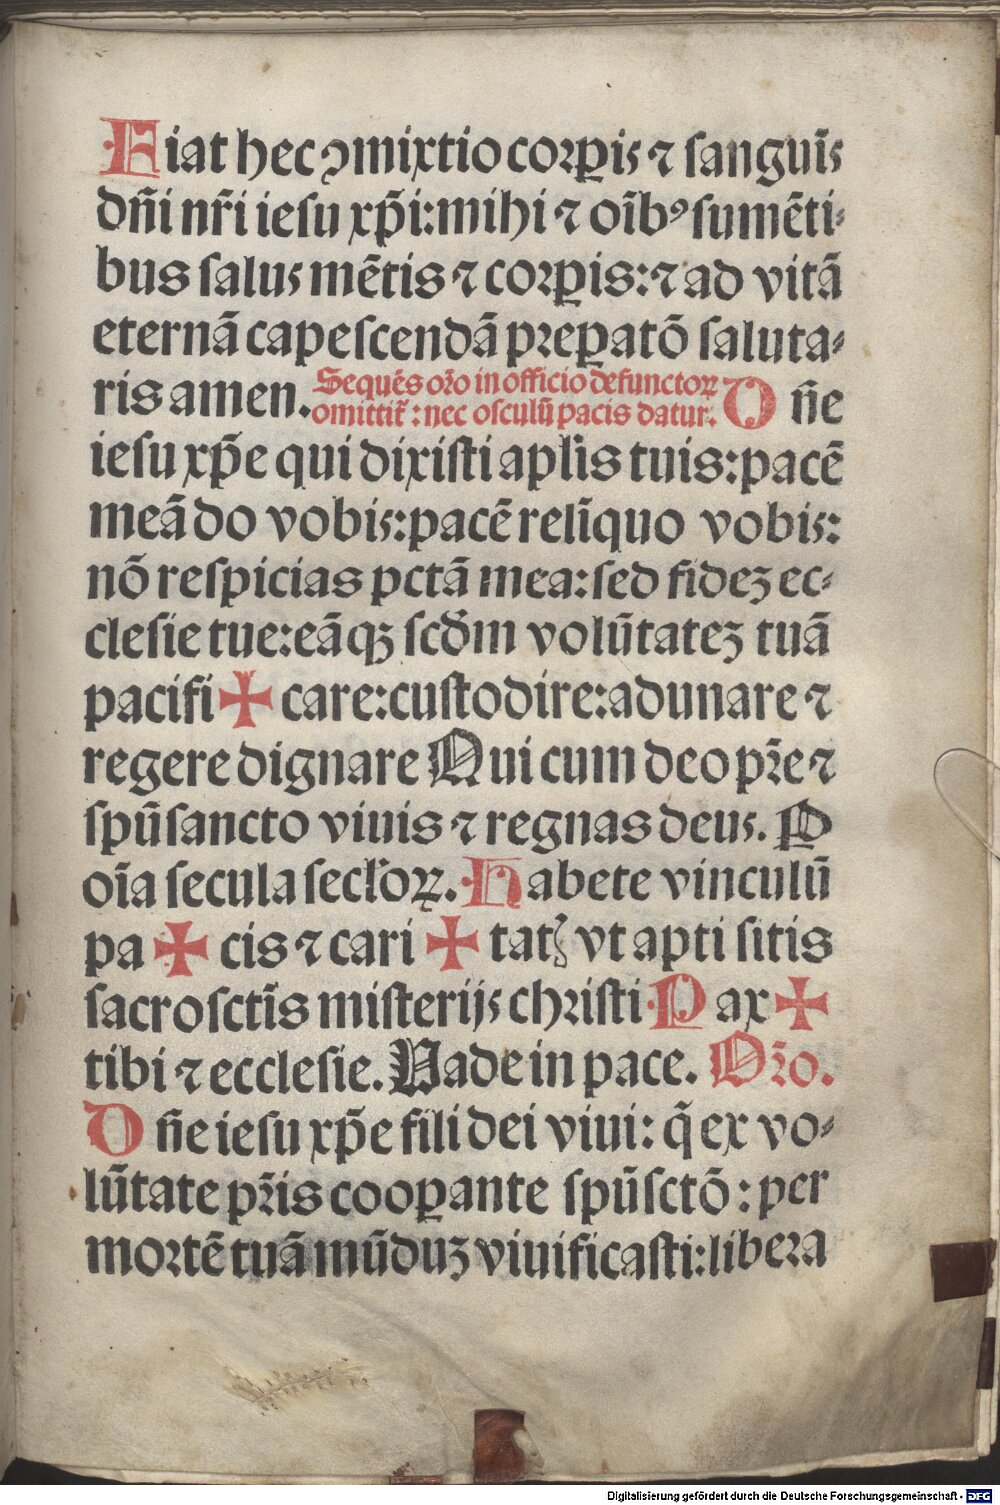 Fiat hec ↄmixtio corꝑis ⁊ sanguīs
dn̄i nr̄i iesu xp̄i: mihi ⁊ oīb⁹ sumēti-
bus salus mētis ⁊ corꝑis: ⁊ ad vitā
eternā capescendā preꝑatō saluta-
ris amen. Sequēs or̄o in officio defunctoꝝ
omittit̄: nec osculū pacis datur. Dn̄e
iesu xp̄e qui dixisti apl̄is tuis: pacē
meā do vobis: pacē relīquo vobis:
nō respicias pctā mea: sed fidez ec-
clesie tue: eāqꝫ scd̄m volūtatez tuā
pacifi ✠ care: custodire: adunare ⁊
regere dignare Qui cum deo pr̄e ⁊
spū sancto viuis ⁊ regnas deus. Ꝑ
oīa secula secl̄oꝝ. Habete vinculū
pa ✠ cis ⁊ cari ✠ tatꝭ vt apti sitis
sacrosctīs misterijs christi Pax ✠
tibi ⁊ ecclesie. Vade in pace. Or̄o.
Dn̄e iesu xp̄e fili dei viui: q̄ ex vo-
lūtate pr̄is cooꝑante spū sctō: per
mortē tuā mūduz viuificasti: libera
Digitalisierung gefördert durch die Deutsche Forschungsgemeinschaft - DFG